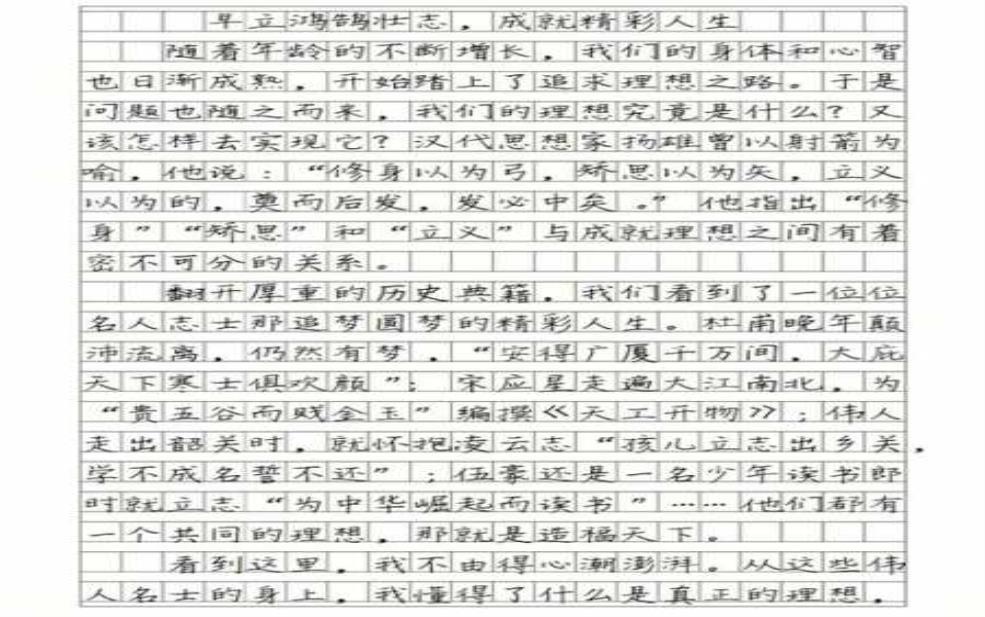 早立鸿鹄壮志，成就精彩人生
随着年龄的不断增长，我们的身体和心智
也日渐成熟，开始踏上了追求理想之路。于是
问题也随之而来，我们的理想究竟是什么？又
该怎样去实现它？汉代思想家扬雄曾以射箭为
喻，他说：“修身以为弓，矫思以为矢，立义
以为的，奠而后发，发必中矣。”他指出“修
身”“矫思”和“立义”与成就理想之间有着
密不可分的关系。
翻开厚重的历史典籍，我们看到了一位位
名人志士那追梦圆梦的精彩人生。杜甫晚年颠
沛流离，仍然有梦，“安得广厦千万间，大庇
天下寒士俱欢颜”；宋应星走遍大江南北，为
“贵五谷而贱金玉”编撰《天工开物》；伟人
走出韶关时，就怀抱凌云志“孩儿立志出乡关，
学不成名誓不还”；伍豪还是一名少年读书郎
时就立志“为中华崛起而读书”……他们都有
一个共同的理想，那就是造福天下。
看到这里，我不由得心潮澎湃。从这些伟
人名士的身上，我懂得了什么是真正的理想，